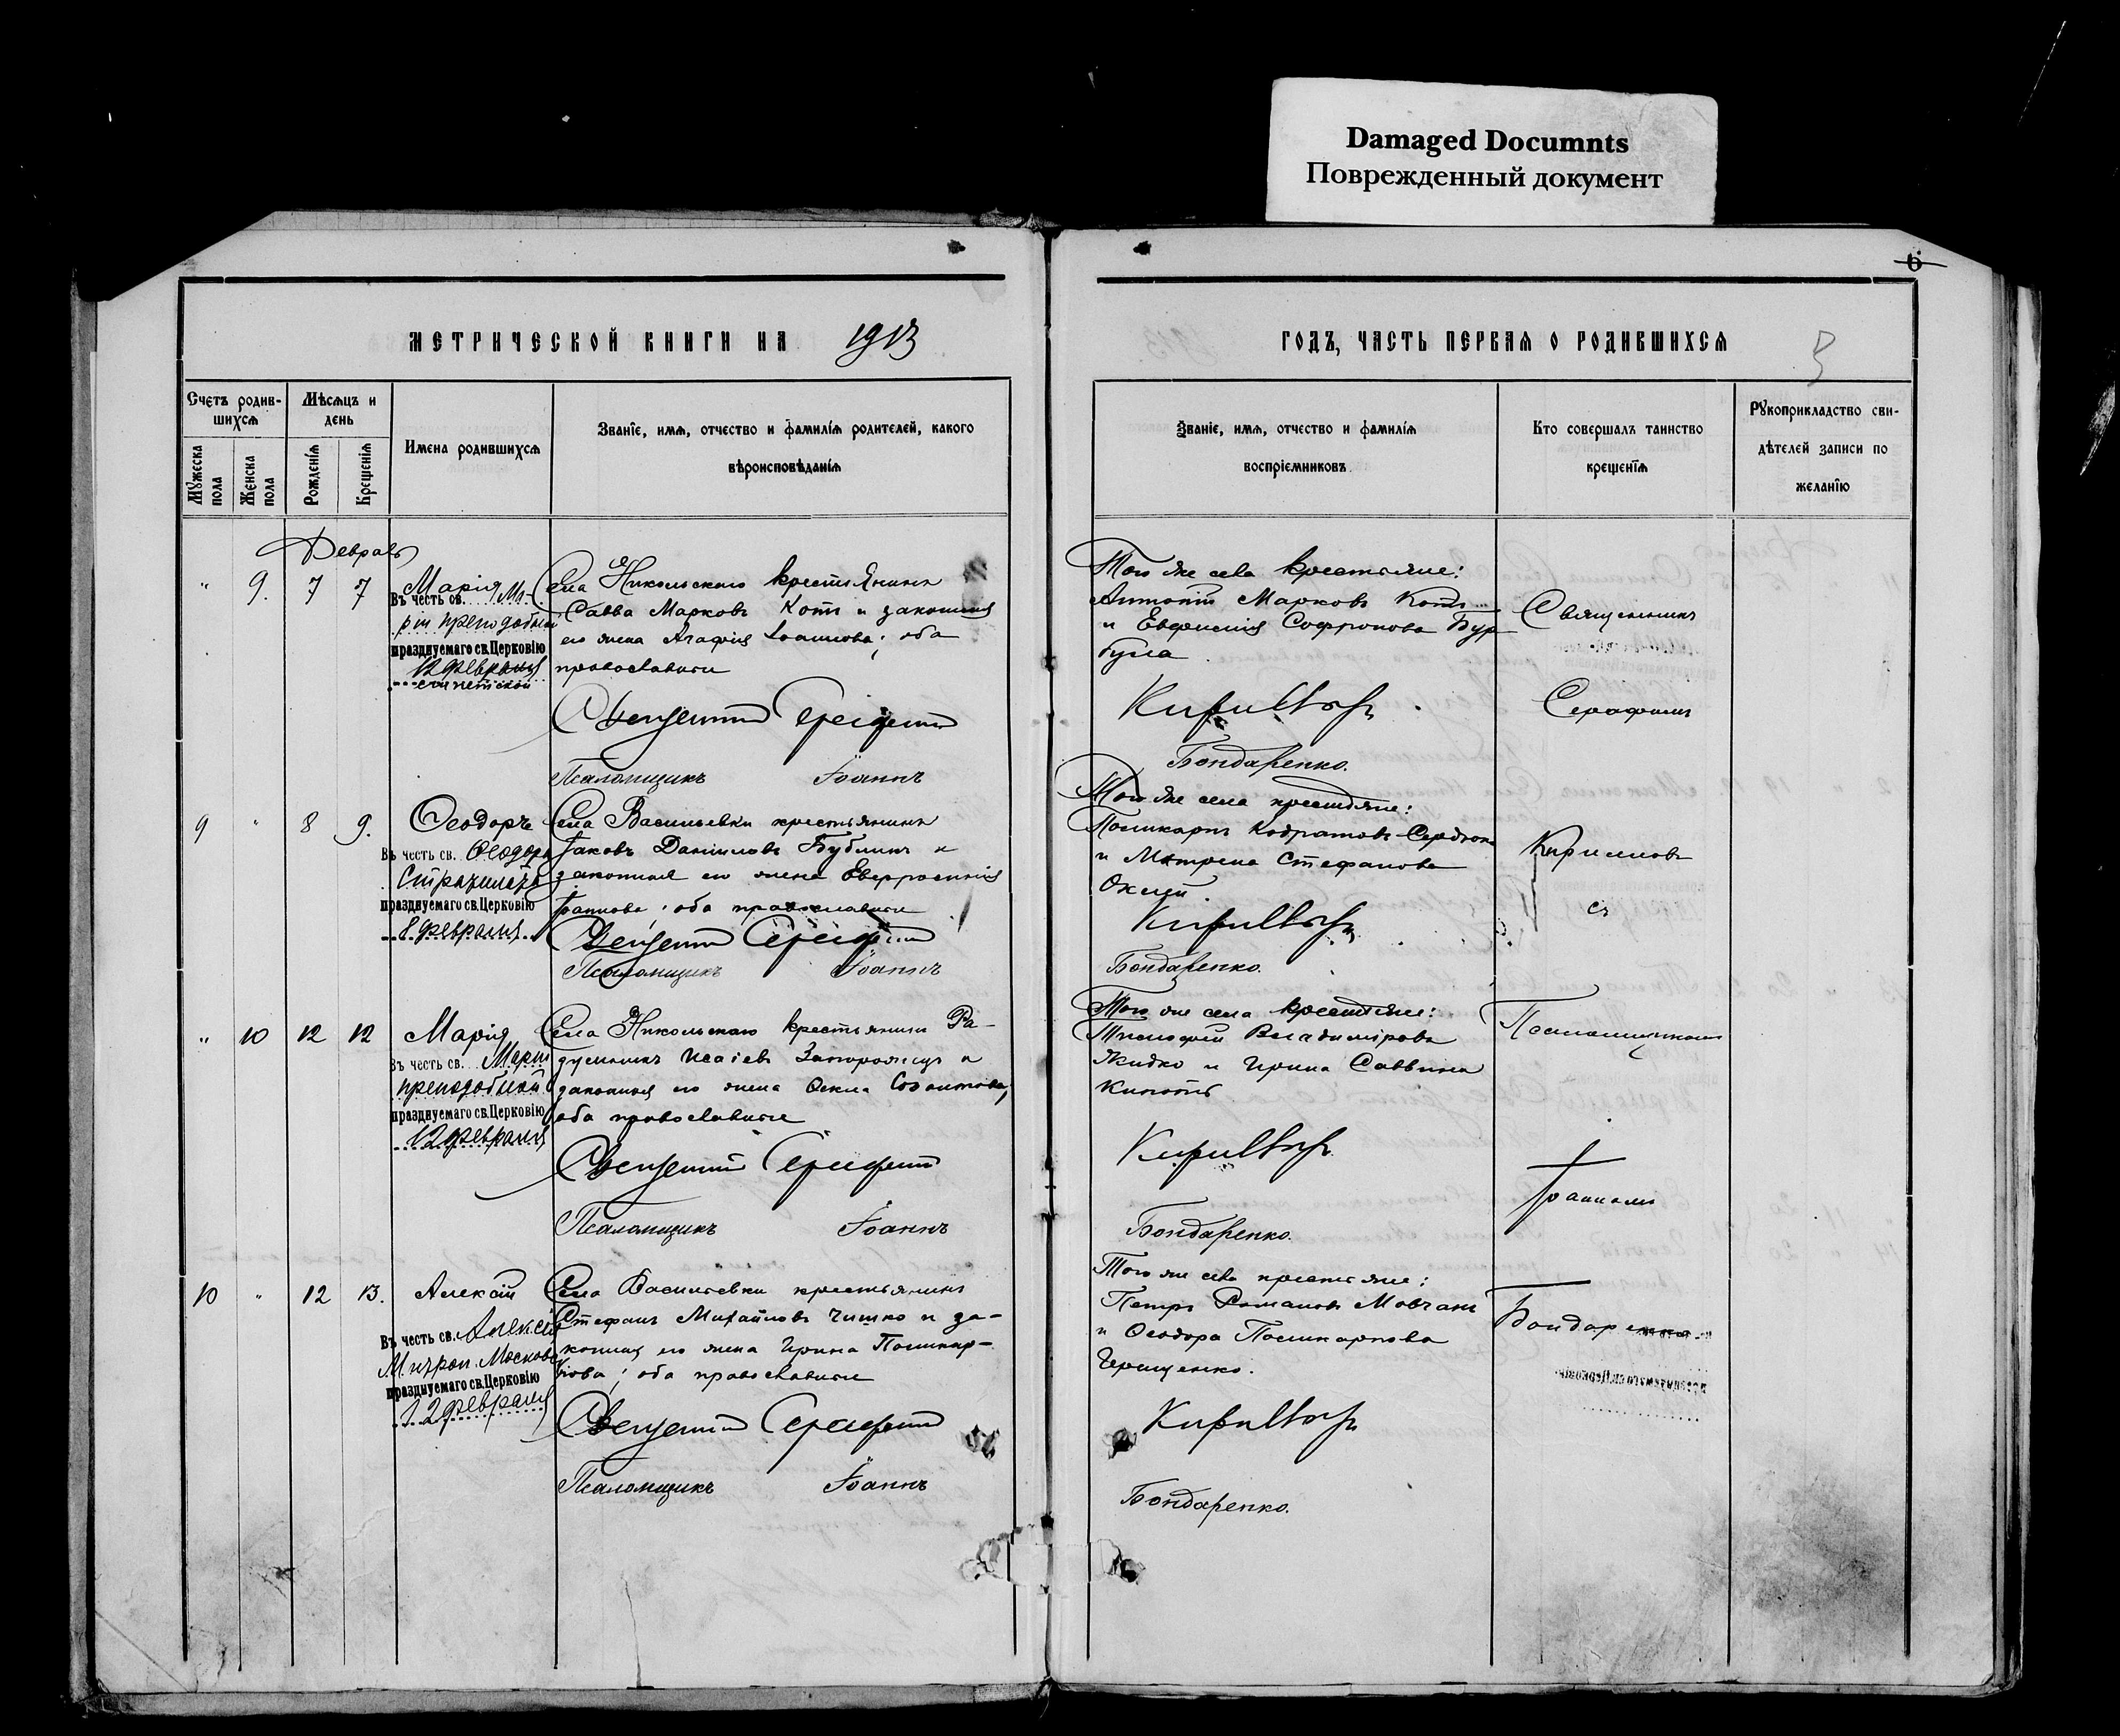 Damaged Documnts
Поврежденный документ
6
МЕТРИЧЕСКОЙ КНИГИ НА 1913
ГОДЪ, ЧАСТЬ ПЕРВАЯ О РОДИВШИХСЯ
5
Счетъ родив-
шихся
Мѣсяцъ и
день
Мужеска
пола
Женска
пола
Рожденія
Крещенія
Имена родившихся
Званіе, имя, отчество и фамилія родителей, какого
вѣроисповѣданія
Званіе, имя, отчество и фамилія
воспріемниковъ.
Кто совершалъ таинство
крещенія
Рукоприкладство сви-
дѣтелей записи по
желанію
Февраль
" 9. 7 7
Марія
Въ честь св. Ма-
ріи преподобной
празднуемаго св. Церковію
12 февраля
египетской
Села Никольскаго крестьянинъ
Савва Марковъ Котъ и законная
его жена Агафія Іоаннова; оба
православные
Священникъ Серафимъ
Псаломщикъ Іоаннъ
Того же села крестьяне:
Антоній Марковъ Котъ
и Евфимія Софронова Бур
була
Кирилловъ
Бондаренко.
9 " 8 9.
Ѳеодоръ
Въ честь св. Ѳеодора
Стратилата
празднуемаго св. Церковію
8 февраля
Села Васильевки крестьянинъ
Іаковъ Даниловъ Бублик и
законная его жена Евфросинія
Іоаннова; оба православные
Священникъ Серафимъ
Псаломщикъ Іоаннъ
Того же села крестьяне:
Поликарпъ Кодратовъ Сердюкъ
и Матрона Стефанова
Кирилловъ
Бондаренко.
" 10 12 12
Марія
Въ честь св. Маріи
преподобной
празднуемаго св. Церковію
12 февраля
Села Никольскаго крестьянинъ
Исаіевъ Запорожецъ и
законная его жена Ѳекла
оба православные
Священникъ Серафимъ
Псаломщикъ Іоаннъ
Того же села крестьяне:
Тимофей Владиміровъ
Жидко и Ирина Саввина
Кирилловъ
Бондаренко.
10 " 12 13.
Алексій
Въ честь св. Алексія
Митроп. Московс
празднуемаго св. Церковію
12 февраля
Села Васильевки крестьянинъ
Стефанъ Михайловъ Чишко и за-
конная его жена Ирина Поликар-
пова; оба православные
Священникъ Серафимъ
Псаломщикъ Іоаннъ
Того же села крестьяне:
Петръ Романовъ Мовчанъ
и Ѳеодора Поликарпова
Кирилловъ
Бондаренко.
Священникъ
Серафимъ
Кирилловъ
съ
Псаломщикомъ
Іоанномъ
Бондаренко